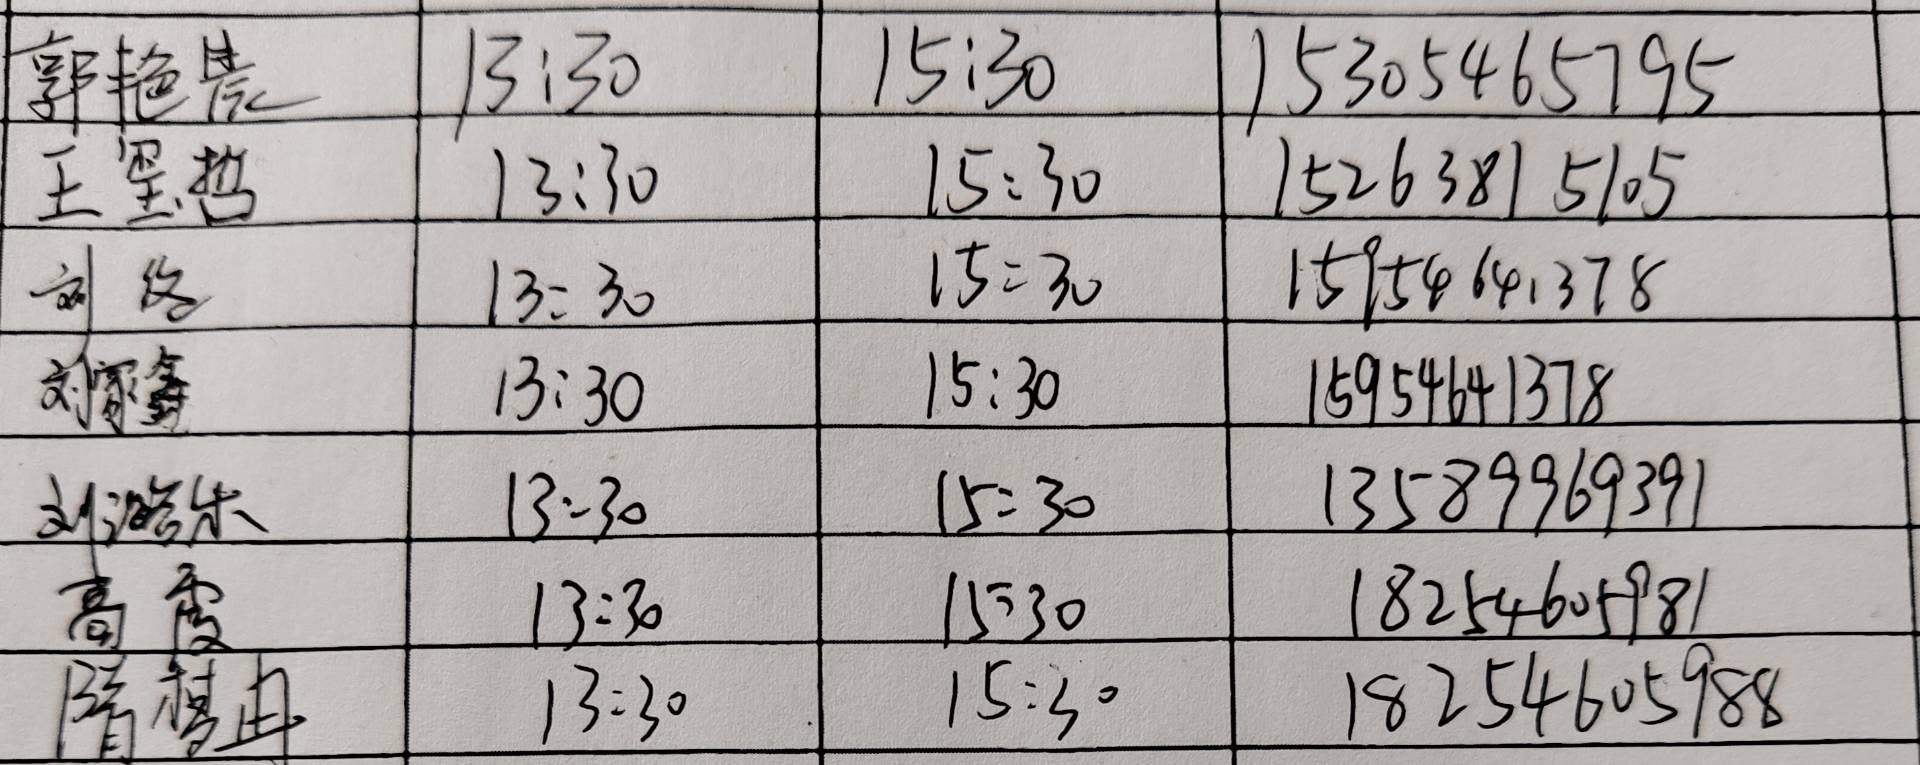 郭艳 13:30 15:30 15305465795
王玺哲 13:30 15:30 15263815105
刘 13:30 15:30 15954641378
刘家鑫 13:30 15:30 15954641378
刘浩 13:30 15:30 13589969391
高霞 13:30 15:30 18254605981
隋棋冉 13:30 15:30 18254605988